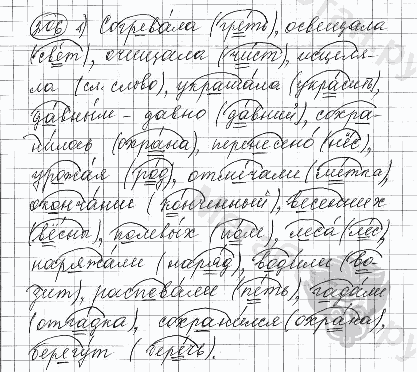 206 1) Согрева́ла (гре́ть), освещала
(све́т), очищала (чи́ст), исцеля-
ла (сл. слово), украша́ла (укра́сить),
да́вным-давно (да́вний), сохра-
ни́лось (охра́на), перенесено́ (нёс),
урожа́я (ро́д), отмеча́ли (ме́тка),
оконча́ние (ко́нченный), весенних
(вёсны), полевы́х (по́ле), леса́ (ле́с),
наряжа́ли (наря́д), води́ли (во́-
дит), распева́ли (пе́ть), гада́ли
(отга́дка), сохрани́лся (охра́на),
берегу́т (бере́чь).